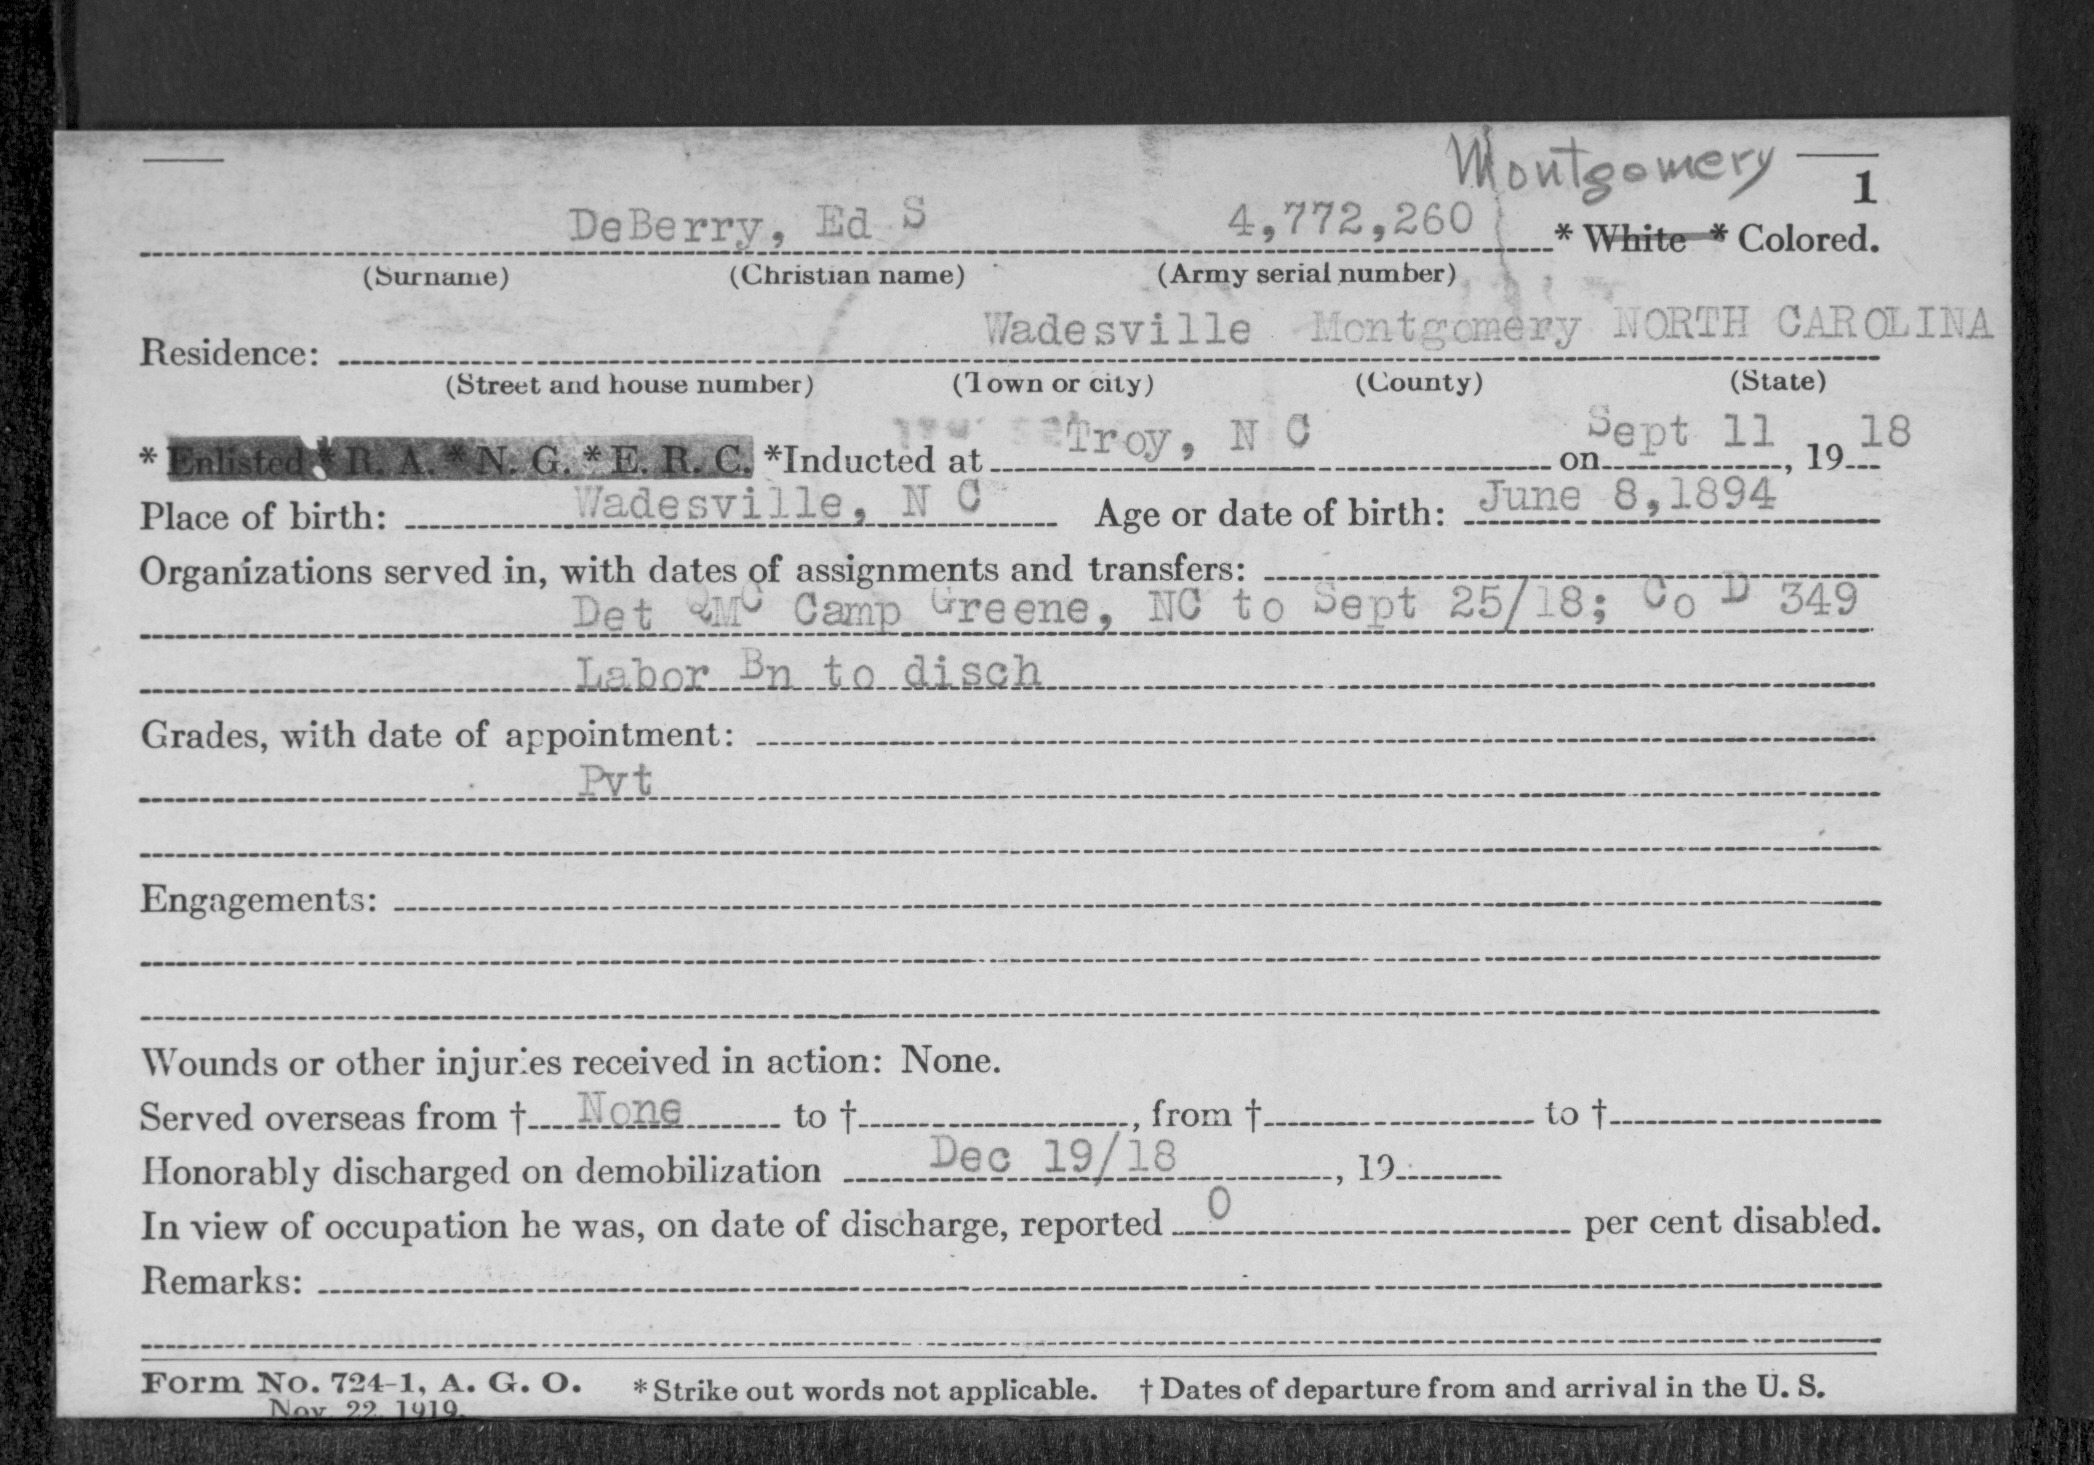 Montgomery
1
DeBerry, Ed S 4,772,260 * White * Colored.
(Surname) (Christian name) (Army serial number)
Wadesville Montgomery NORTH CAROLINA
Residence:
(Street and house number) (Town or city) (County) (State)
* Enlisted * R. A. * N. G. * E. R. C. *Inducted at Troy, N C on Sept 11, 1918
Place of birth: Wadesville, N C Age or date of birth: June 8,1894
Organizations served in, with dates of assignments and transfers:
Det QMC Camp Greene, NC to Sept 25/18; Co D 349
Labor Bn to disch
Grades, with date of appointment:
Pvt
Engagements:
Wounds or other injuries received in action: None.
Served overseas from † None to †, from † to †
Honorably discharged on demobilization Dec 19/18, 19
In view of occupation he was, on date of discharge, reported 0 per cent disabled.
Remarks:
Form No. 724-1, A. G. O. * Strike out words not applicable. † Dates of departure from and arrival in the U. S.
Nov. 22, 1919.